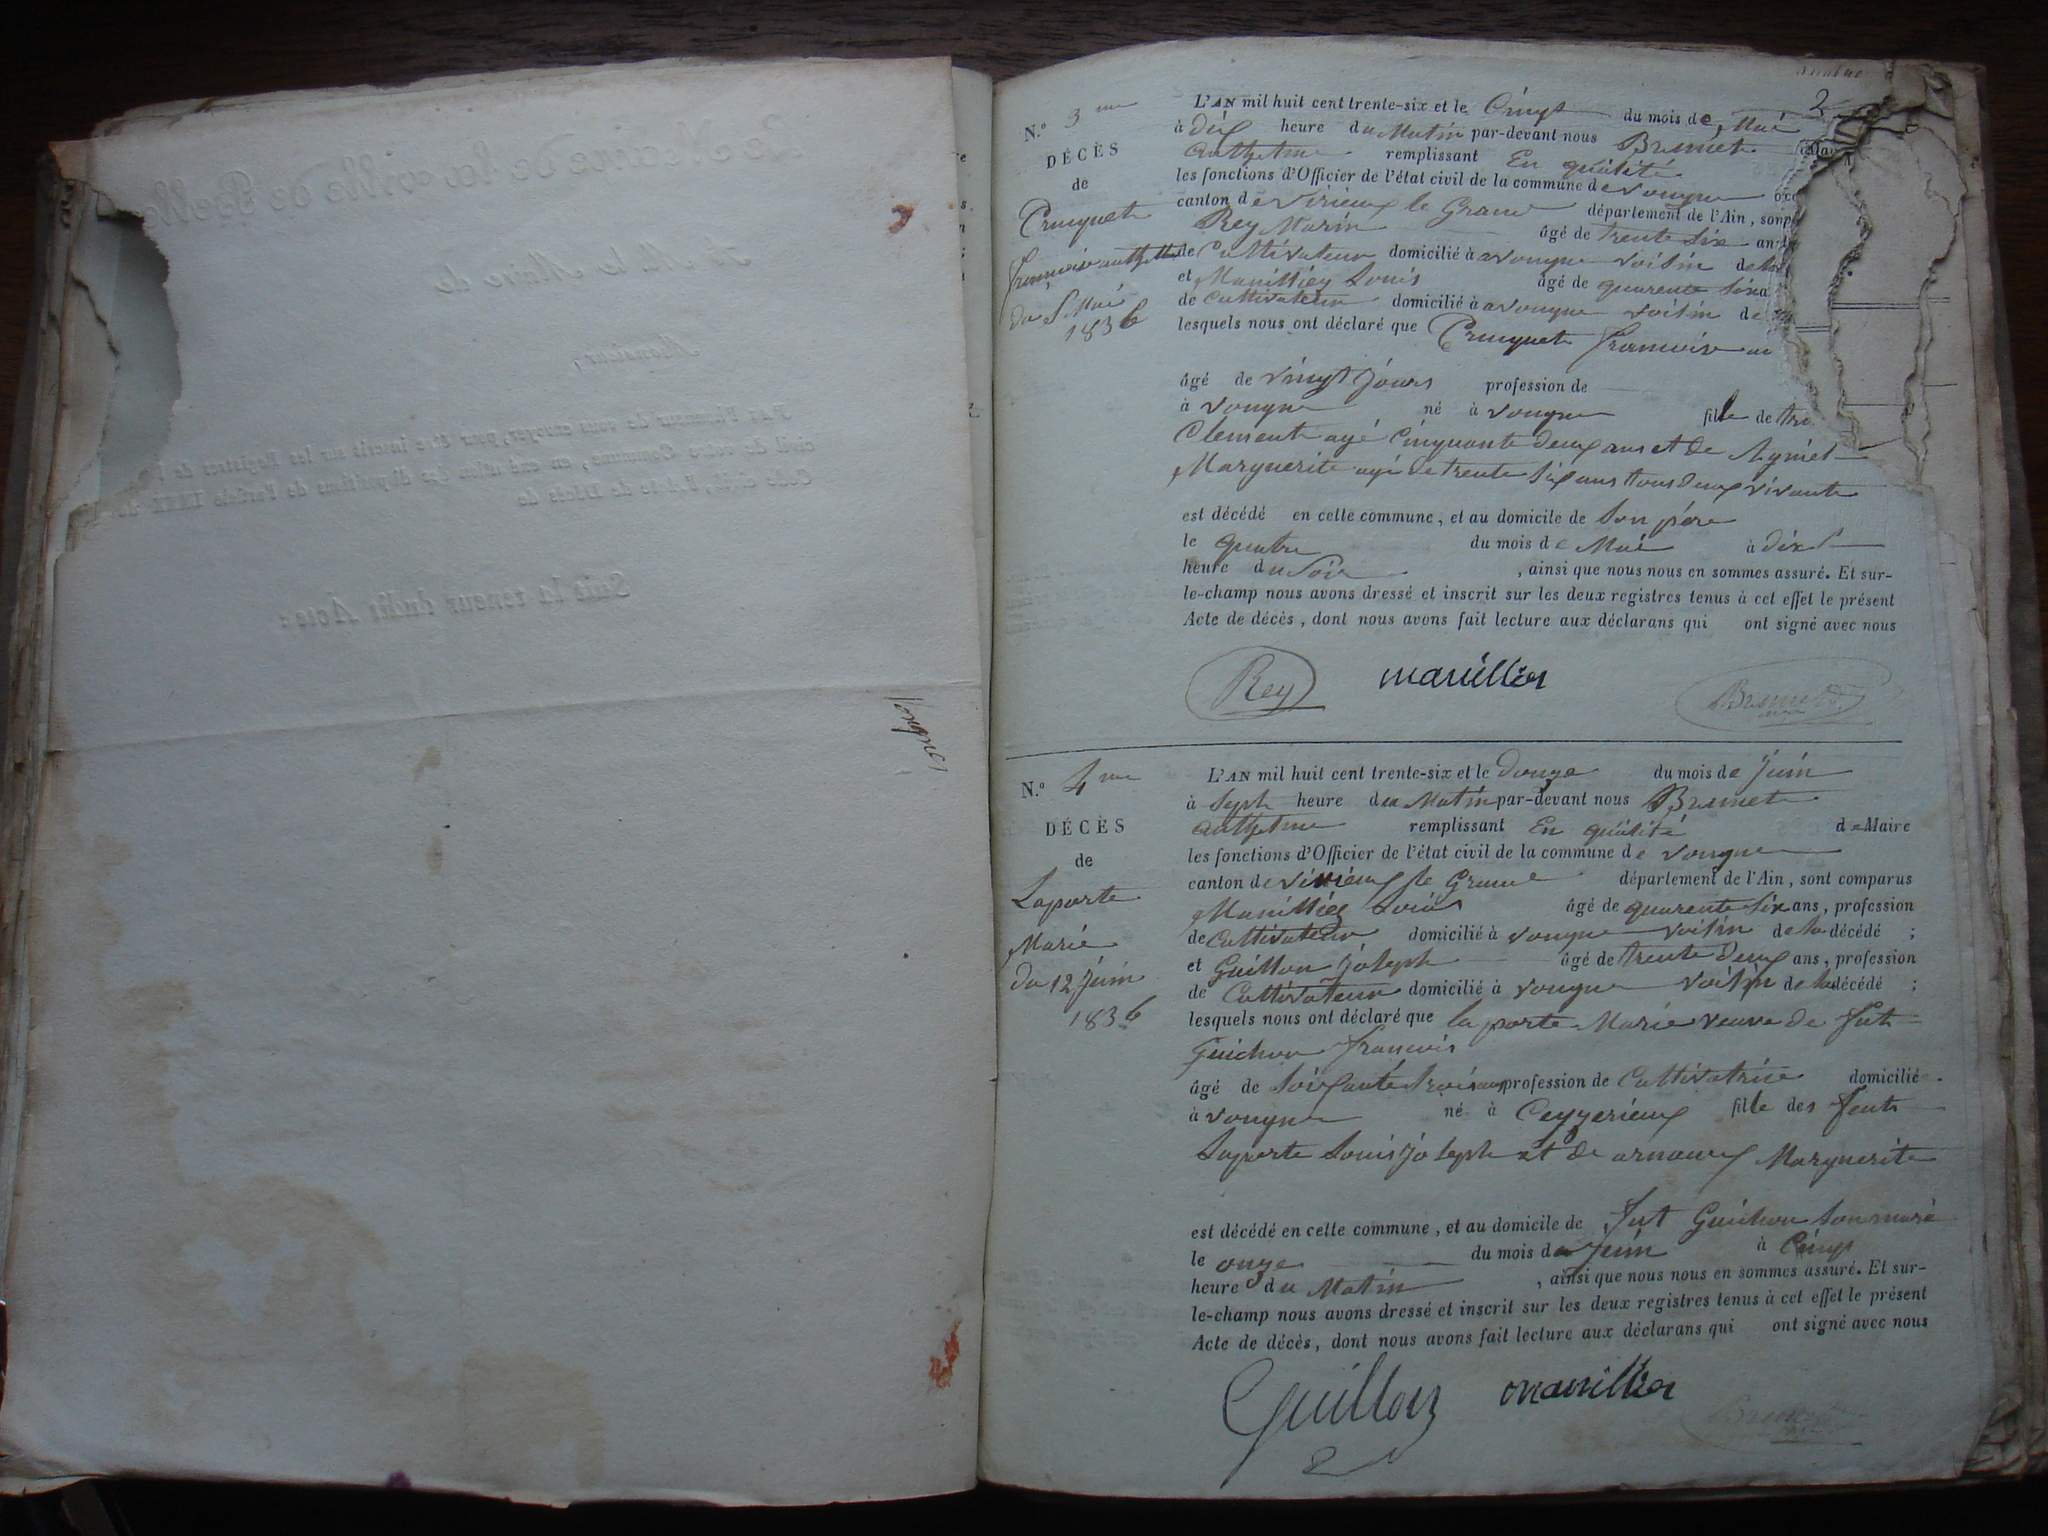 Vongnes
2
N.º 3 me
DÉCÈS
de
Françoise anthelme
du 5 Mai
1836
L'AN mil huit cent trente-six et le Cinq du mois de Mai
à dix heure du Matin par-devant nous Brunet
anthelme remplissant En qualité
les fonctions d'Officier de l'état civil de la commune de vongne
canton de virieux le Grand département de l'Ain, son
Rey Marin âgé de trente six an
de Cultivateur domicilié à avongne voisin de la
et Manillier Louis âgé de quarente six a
de Cultivateur domicilié à avongne voisin de
lesquels nous ont déclaré que françoise
âgé de vingt jours profession de
à vongne né à vongne fille de
Clement agé Cinquante deux ans et de
Marguerite agé de trente six ans tous deux vivants
est décédé en cette commune, et au domicile de son père
le quatre du mois de Mai à dix
heure du soir , ainsi que nous nous en sommes assuré. Et sur-
le-champ nous avons dressé et inscrit sur les deux registres tenus à cet effet le présent
Acte de décès, dont nous avons fait lecture aux déclarans qui ont signé avec nous
Rey manillier Brunet
N.º 4 me
DÉCÈS
de
Laporte
Marie
du 12 juin
1836
L'AN mil huit cent trente-six et le douze du mois de juin
à sept heure du Matin par-devant nous Brunet
anthelme remplissant En qualité de Maire
les fonctions d'Officier de l'état civil de la commune de vongne
canton de virieux le Grand département de l'Ain, sont comparus
Manillier Louis âgé de quarente six ans, profession
de Cultivateur domicilié à vongne voisin de la décédé ;
et Guillon joseph âgé de trente deux ans, profession
de Cultivateur domicilié à vongne voisin de la décédé ;
lesquels nous ont déclaré que la porte Marie veuve de fut
Guichon francois
âgé de soixante trois ans profession de Cultivatrice domicilié
à vongne né à Ceyzerieux fille des feuts
Laporte Louis joseph et de arnaux Marguerite
est décédé en cette commune, et au domicile de fut Guichon son mari
le onze du mois de juin à Cinq
heure du Matin , ainsi que nous nous en sommes assuré. Et sur-
le-champ nous avons dressé et inscrit sur les deux registres tenus à cet effet le présent
Acte de décès, dont nous avons fait lecture aux déclarans qui ont signé avec nous
Guillon manillier Brunet